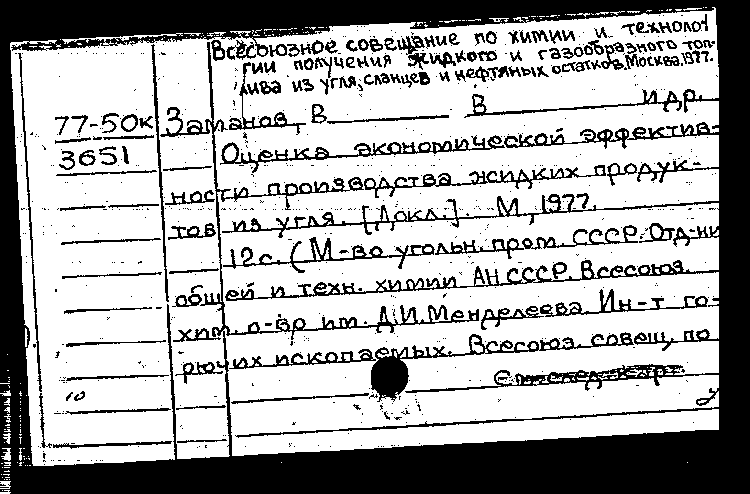 Всесоюзное совещание по химии и технолог
гии получения жидкого и газообразного топ-
лива из угля, сланцев и нефтяных остатков, Москва, 1977.
77-50к Заманов, В В и др.
3651 Оценка экономической эффектив-
ности производства жидких продук-
тов из угля. [Докл.]. М, 1977.
12 с. (М-во угольн. пром. СССР. Отд-ни
общей и техн. химии АН СССР. Всесоюз.
хим. о-во им. Д.И. Менделеева. Ин-т го-
рючих ископаемых. Всесоюз. совещ. по
См след карт
10